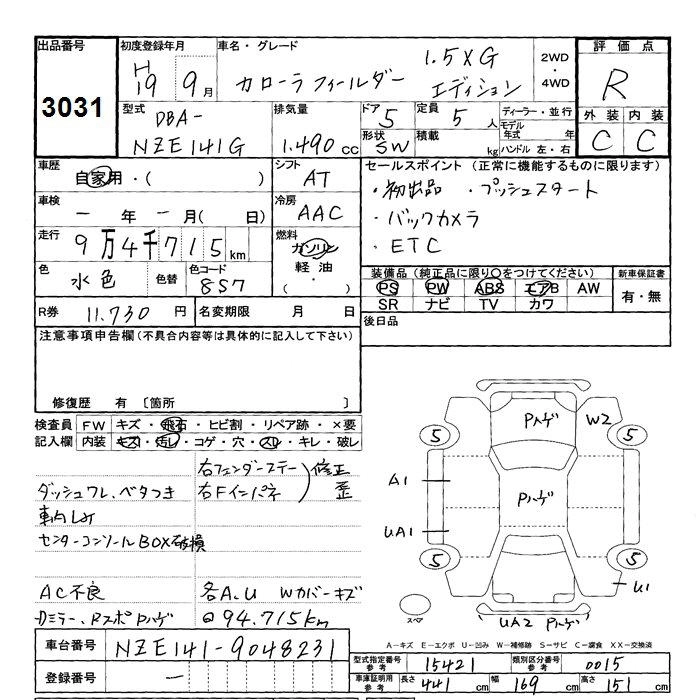 出品番号 3031
初度登録年月 H19 9月
車名・グレード カローラフィールダー 1.5XG エディション
2WD・4WD
評価点 R
外装 内装
C C
型式 DBA-NZE141G
排気量 1.490cc
ドア 5
定員 5人
形状 SW
積載 kg
ディーラー・並行
モデル年式 年
ハンドル 左・右
車歴 自家用・( )
シフト AT
車検 ー年ー月( 日)
冷房 AAC
走行 9万4千715km
燃料 ガソリン 軽油・( )
色 水色 色替
色コード 8S7
R券 11.730円
名変期限 月 日
セールスポイント(正常に機能するものに限ります)
・初出品 ・プッシュスタート
・バックカメラ
・ETC
装備品(純正品に限り○をつけてください)
PS PW ABS エアB AW
SR ナビ TV カワ
新車保証書 有・無
後日品
注意事項申告欄(不具合内容等は具体的に記入して下さい)
修復歴 有〔箇所 〕
検査員記入欄
FW キズ・飛石・ヒビ割・リペア跡・×要
内装 キズ・汚レ・コゲ・穴・スレ・キレ・破レ
右フェンダーステー
右Fインパネ
修正
歪
ダッシュワレ、ベタつき
センターコンソールBOX破損
AC不良
各A.U Wカバーキズ
Dミラー、RスポPハゲ
94.715km
Pハゲ W2
5 5
A1 Pハゲ
UA1
5 5
U1
スペア
UA2 Pハゲ
A－キズ E－エクボ U－凹み W－補修跡 S－サビ C－腐食 XX－交換済
車台番号 NZE141-9048231
登録番号 ー
型式指定番号 参考 15421
類別区分番号 参考 0015
車庫証明用 参考 長さ 441cm 幅 169cm 高さ 151cm